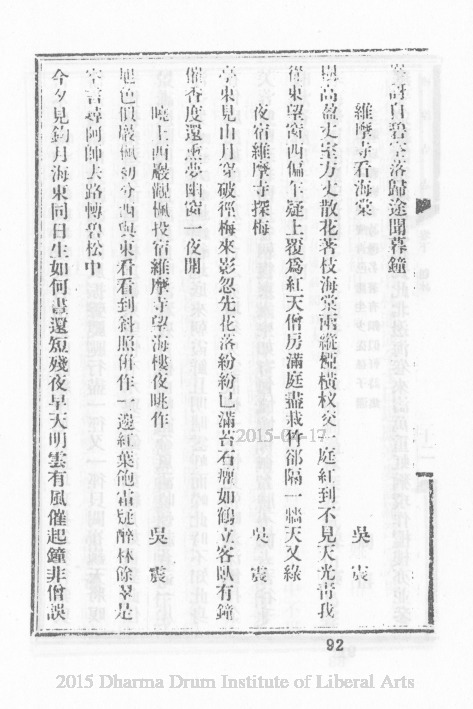 碧空落歸途聞暮鐘
維摩寺看海棠
吳震
高盈丈室方丈散花著枝海棠兩縱橫杈交一庭紅到不見天光青我
從東望窗西偏乍疑上覆爲紅天僧房滿庭盡栽竹卻隔一牆天又綠
夜宿維摩寺探梅
吳震
亭東見山月穿破徑梅來影忽先花落紛紛已滿苔石癯如鶴立客臥有鐘
催香度還熏夢幽窗一夜開
曉上西巖觀楓投宿維摩寺望海樓夜眺作
吳震
色似嚴楓初分西與東看看到斜照併作一邊紅葉飽霜疑醉林餘翠是
空言尋阿師去路轉碧松中
今夕見鉤月海東同日生如何晝還短殘夜早天明雲有風催起鐘非僧誤
92
2015-04-17
2015 Dharma Drum Institute of Liberal Arts